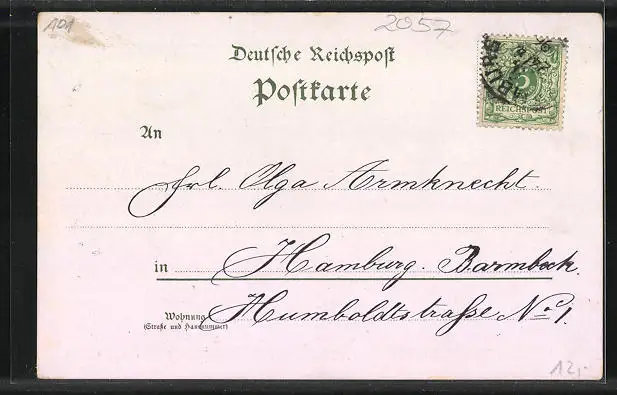 101
2057
Deutsche Reichspost
Postkarte
5
REICHSPOST
An
Frl. Olga Armknecht.
in Hamburg. Barmbeck.
Wohnung
(Straße und Hausnummer)
Humboldtstraße No 1.
12,-